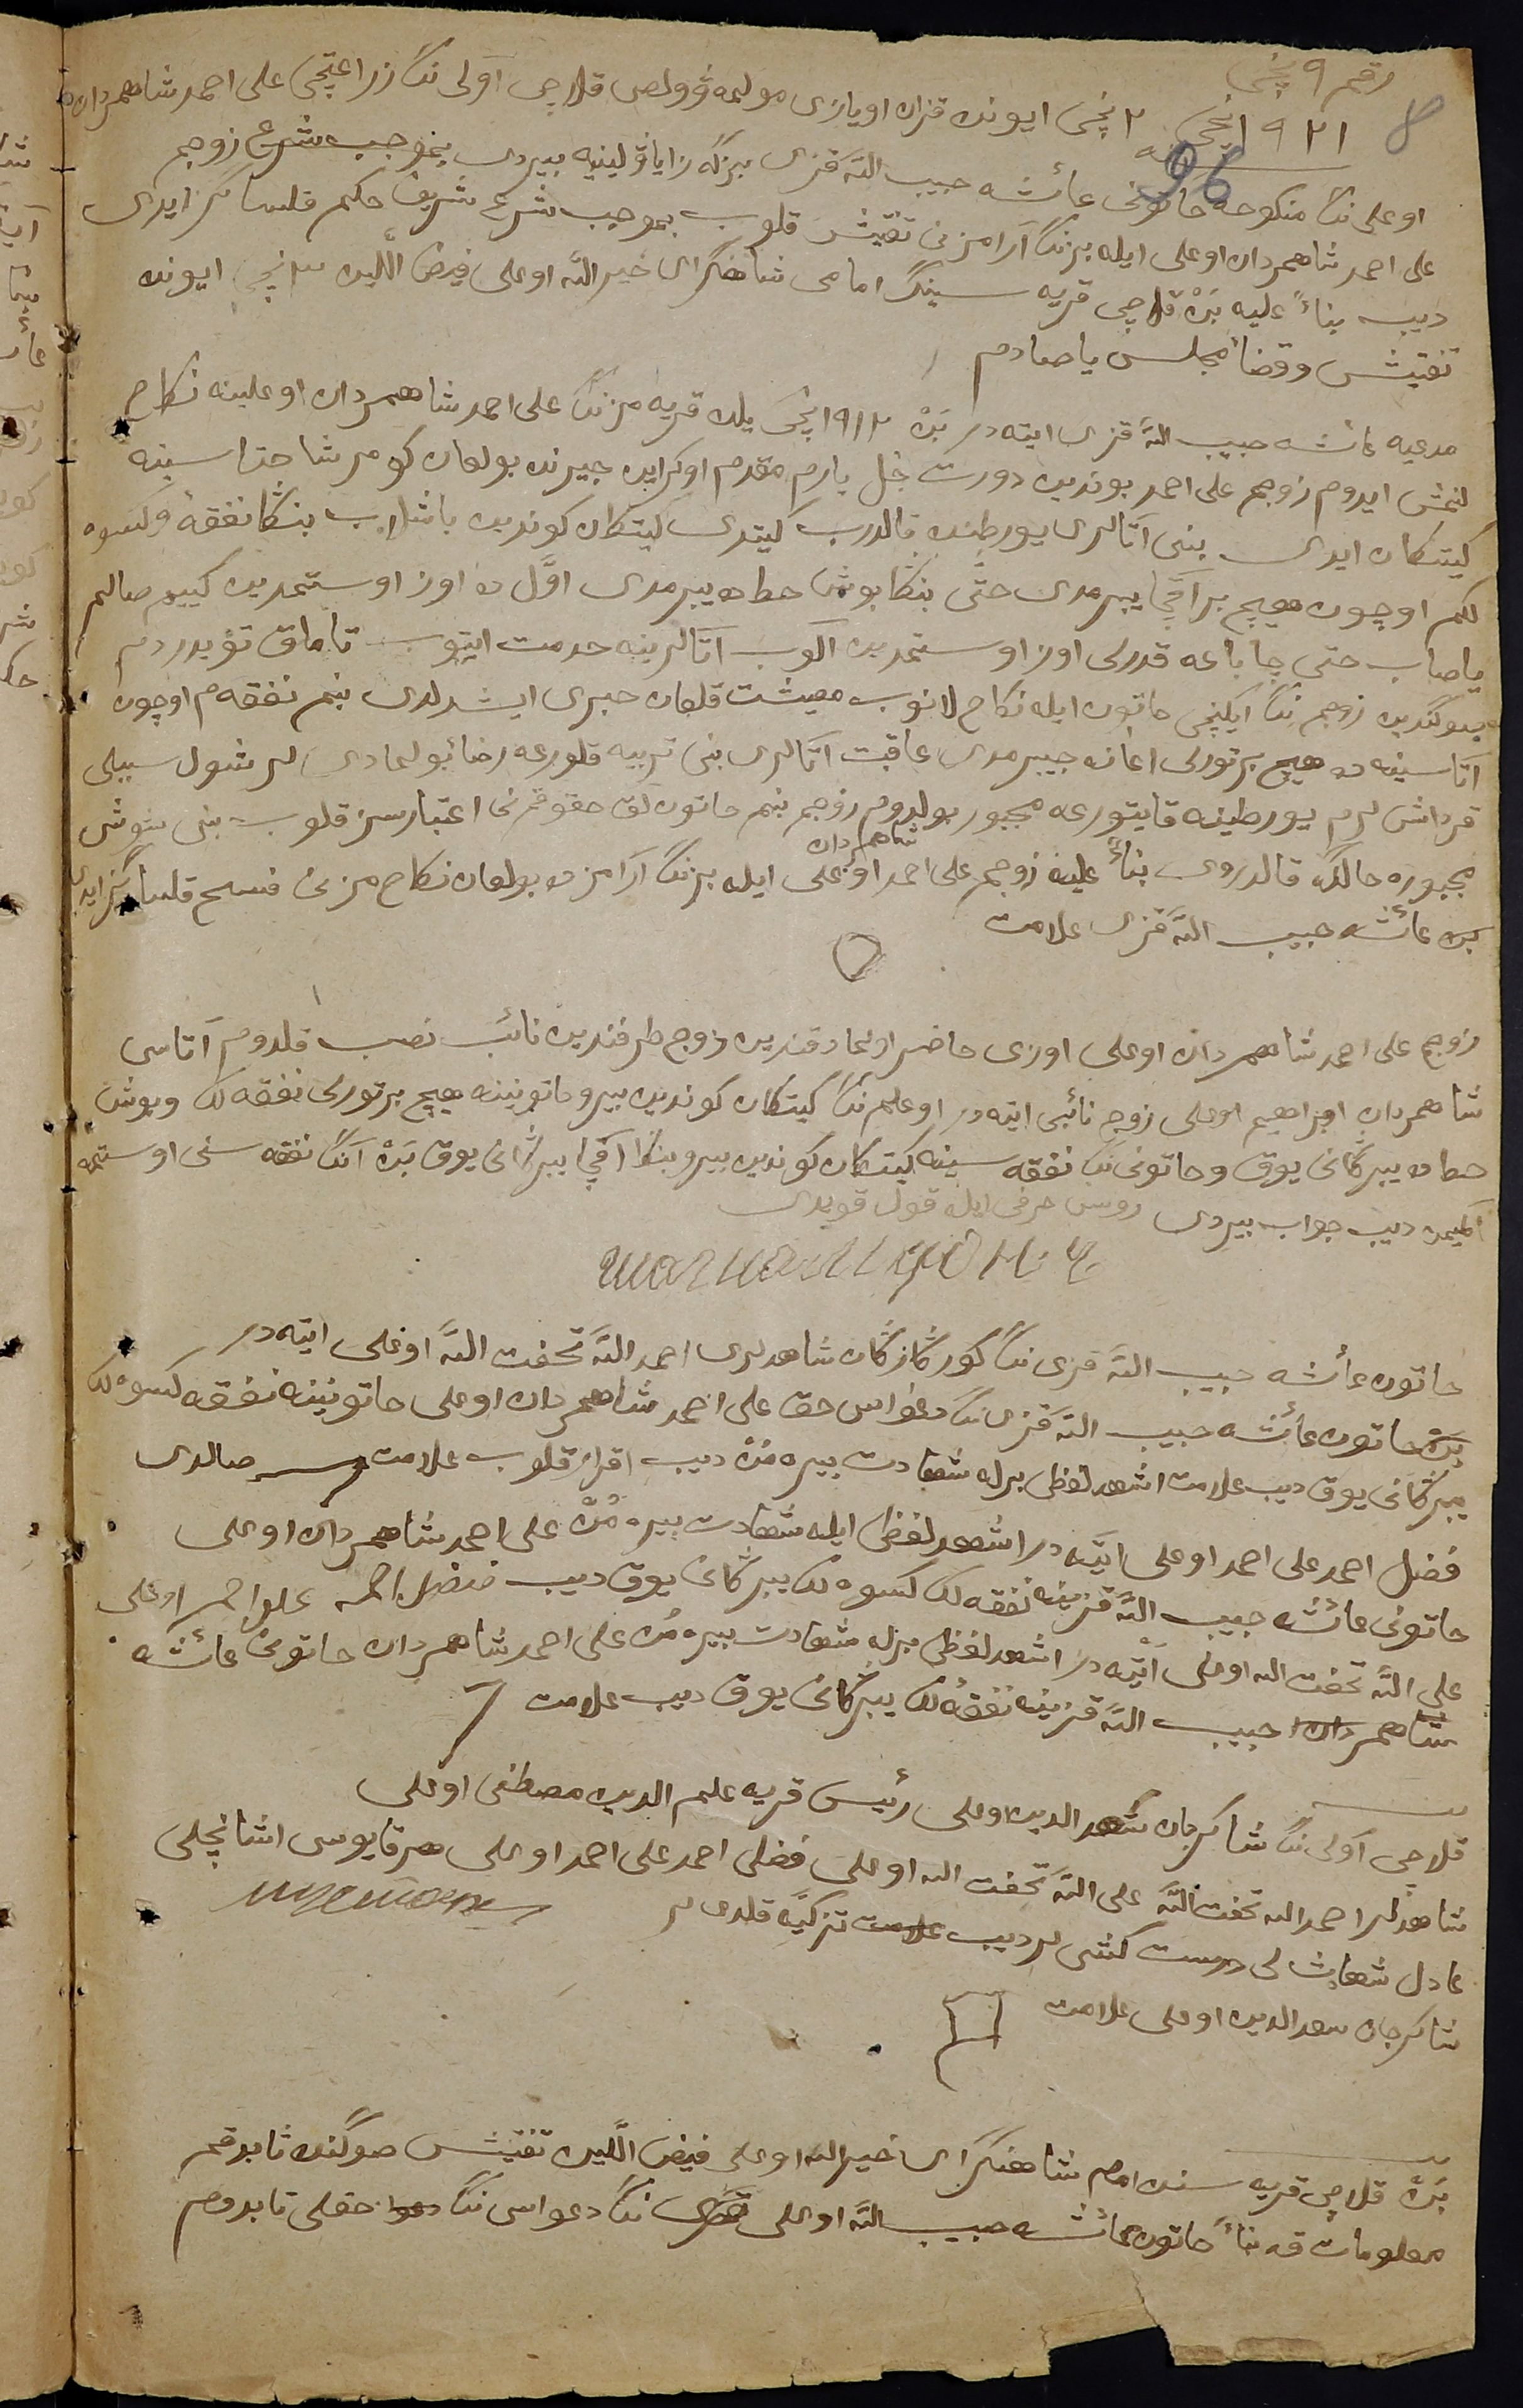 رقم ٩ نچی
8
١٩٢١ نچی ٢ نچی ایونده قزان اویازی مولمه ڤولص قلاچی آولی ننك زراعتچی علی احمد شاهمردان
96
اوغلی ننك منکوحه خاتونی عائشه حبیب الله قزی بزگه زایاڤلینیه بیردی بموجب شرع زوجم
علی احمد شاهمردان اوغلی ایله بزننك آرامزنی تفتیش قلوب بموجب شرع شریف حکم قلسانگز ایدی
دیب بناءً علیه بَنْ قلاچی قریه سینك امامی شاهنگرای خیرالله اوغلی فیض اللین ٣ نچی ایونده
تفتیش وقضا مجلس یاصادم
مدعیه عائشه حبیب الله قزی ایته در بَنْ ١٩١٢ نچی یلده قریه مزننك علی احمد شاهمردان اوغلینه نکاح
لنمش ایدوم زوجم علی احمد بوندین دورت یل یارم مقدم اوکراین جیرنده بولغان کومر شاحتاسینه
کیتکان ایدی بنی آتالری یورطنده قالدرب کیتدی کیتکان کوندین باشلاب بنكا نفقه وکسوه
لکم اوچون هیچ بر آقچا یبرمدی حتی بنكا بوش خط ده یبرمدی اوّل ده اوز اوستمدین کییم صالم
یاصاب حتی چاباغه قدرلی اوز اوستمدین آلوب آتالرینه خدمت ایتوب تاماق تویدردم
بوگندین زوجم ننك ایکنچی خاتون ایله نکاح لانوب معیشت قلغان خبری ایشدلدی بنم نفقه م اوچون
آتاسینه ده هیچ بر تورلی اعانه جیبرمدی عاقبت آتالری بنی تربیه قلورغه رضا بولمادیلر شول سببلی
قرداش لرم یورطینه قایتورغه مجبور بولدوم زوجم بنم خاتون لق حقوقمنی اعتبارسز قلوب بنی شوشی
مجبوره حالگه قالدردی بناءً علیه زوجم علی احمد شاهمردان اوغلی ایله بزننك آرامزده بولغان نکاح مزنی فسح قلسانگز ایدی
بن عائشه حبیب الله قزی علامت
زوجم علی احمد شاهمردان اوغلی اوزی حاضر اولمادقندین زوج طرفندین نائب نصب قلدوم آتاسی
شاهمردان ابراهیم اوغلی زوج نائبی ایته در اوغلم ننك کیتکان کوندین بیرو خاتونینه هیچ بر تورلی نفقه لك وبوش
خط ده یبرگانی یوق وخاتونی ننك نفقه سینه کیتکان کوندین بیرو بنكا آقچا یبرگانی یوق بَنْ آنكا نفقه سنی اوستمه
آلمیمن دیب جواب بیردی روس حرفی ایله قول قویدی
خاتون عائشه حبیب الله قزی ننك کورگازگان شاهدلری احمد الله تحفت الله اوغلی ایته در
بَنْ خاتون عائشه حبیب الله قزی ننك دعواسی حق علی احمد شاهمردان اوغلی خاتونینه نفقه کسوه لك
یبرگانی یوق دیب علامت اشهد لفظی برله شهادت بیره مُنْ دیب اقرار قلوب علامت صالدی
فضل احمد علی احمد اوغلی ایته در اشهد لفظی ایله شهادت بیره مُنْ علی احمد شاهمردان اوغلی
خاتونی عائشه حبیب الله قزینه نفقه لك کسوه لك یبرگانی یوق دیب فضل احمد علی احمد اوغلی
علی الله تحفت الله اوغلی ایته در اشهد لفظی برله شهادت بیره مُن علی احمد شاهمردان خاتونی عائشه
شاهمردان حبیب الله قزینه نفقه لك یبرگانی یوق دیب علامت
قلاچی آولی ننك شاکرجان سعد الدین اوغلی رئیس قریه علم الدین مصطفی اوغلی
شاهدلر احمد الله تحفت الله علی الله تحفت الله اوغلی فضل احمد علی احمد اوغلی هرقایوسی اشانچلی
عادل شهادت لی درست کشی لر دیب علامت تزکیه قلدیلر
شاکرجان سعد الدین اوغلی علامت
بَنْ قلاچی قریه سنده امام شاهنگرای خیرالله اوغلی فیض اللین تفتیش صوگنده تابدقم
معلومات قه بناءً خاتون عائشه حبیب الله اوغلی قزی ننك دعواسی ننك دعوا حقلی تابدوم